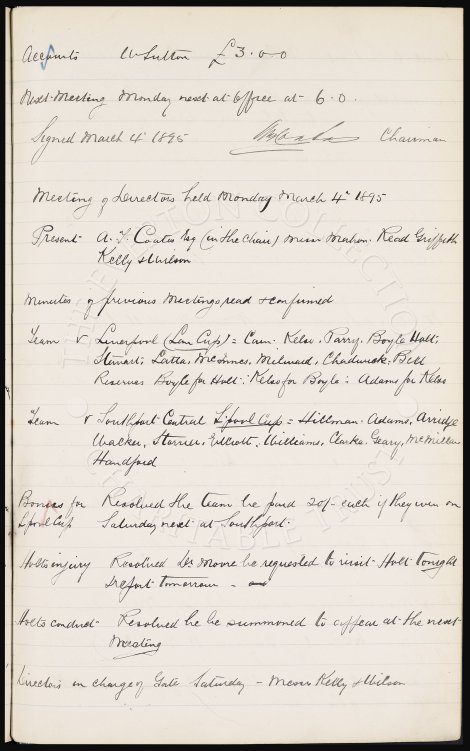 Accounts W Sutton £3.0.0
Next Meeting Monday next at Office at 6.0.
Signed March 4 1895 Chairman
Meeting of Directors held Monday March 4th 1895
Present A. T. Coates Esq (in the Chair) Messrs Mahon. Read Griffith
Kelly & Wilson
Minutes of previous Meetings read & confirmed
Team v Liverpool (Lan Cup) = Cain. Kelso. Parry. Boyle Holt.
Stewart. Latta. McInnes. Milward. Chadwick. Bell
Reserves Boyle for Holt: Kelso for Boyle: Adams for Kelso
Team v Southport Central L'pool Cup = Hillman. Adams, Arridge
Walker, Storrier, Elliott, Williams, Clarke. Geary, McMillan
Handford
Bonus for Resolved the team be paid 20/- each if they win on
L'pool Cup Saturday next at Southport.
Holts injury Resolved Dr. Moore be requested to visit Holt tonight
& report tomorrow -
Holts conduct Resolved he be summoned to appear at the next
Meeting
Directors in charge of Gate Saturday - Messrs Kelly & Wilson
THE EVERTON COLLECTION CHARITABLE TRUST